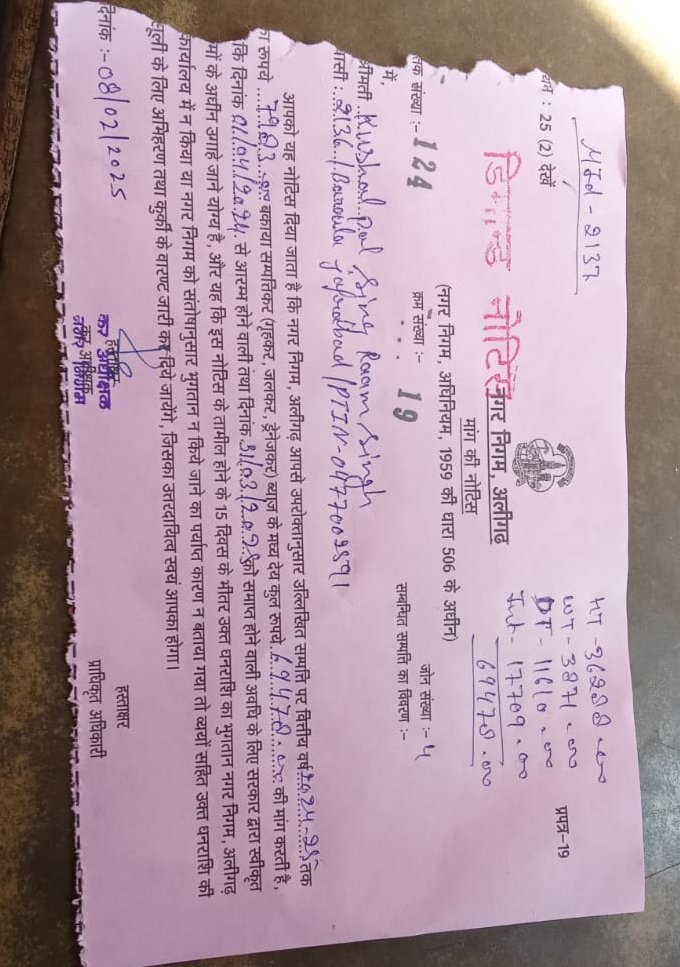 MId - 2137
HT - 36288.00
WT - 3871.00
DT - 11610.00
Int - 17709.00
69478.00
प्रपत्र-19
25 (2) देखें
नोटिस
नगर निगम, अलीगढ़
मांग की नोटिस
(नगर निगम, अधिनियम, 1959 की धारा 506 के अधीन)
जोन संख्या :- 4
तक संख्या :- 124
क्रम संख्या :- 19
सम्बन्धित सम्पत्ति का विवरण :-
में,
श्रीमती Kushal pal Sing Raam Singh
2136/ Barola Jafrabad / PTIN-
आपको यह नोटिस दिया जाता है कि नगर निगम, अलीगढ़ आपसे उपरोक्तानुसार उल्लिखित सम्पत्ति पर वित्तीय वर्ष 2024-25 तक
रूपये 7983.00 बकाया सम्पतिकर (गृहकर, जलकर, ड्रेनेजकर) ब्याज के मध्य देय कुल रूपये 69478.00 की मांग करती है,
कि दिनांक 01/04/2024 से आरम्भ होने वाली तथा दिनांक 31/03/2025 को समाप्त होने वाली अवधि के लिए सरकार द्वारा स्वीकृत
के अधीन उगाहे जाने योग्य है, और यह कि इस नोटिस के तामील होने के 15 दिवस के भीतर उक्त धनराशि का भुगतान नगर निगम, अलीगढ़
कार्यालय में न किया या नगर निगम को संतोषानुसार भुगतान न किये जाने का पर्याप्त कारण न बताया गया तो व्ययों सहित उक्त धनराशि की
के लिए अभिहरण तथा कुर्की के वारण्ट जारी कर दिये जायेंगे, जिसका उत्तरदायित्व स्वयं आपका होगा।
दिनांक :- 08/02/2025
हस्ताक्षर
कर अधीक्षक
नगर निगम
हस्ताक्षर
प्राधिकृत अधिकारी